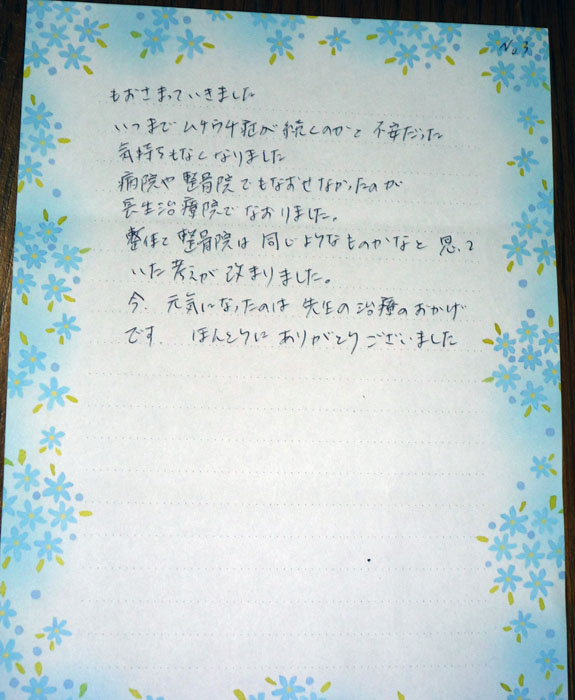 No.3
もおさまっていきました
いつまでムチウチ症が続くのかと不安だった
気持ちもなくなりました
病院や整骨院でもなおせなかったのが
長生治療院でなおりました。
整体と整骨院は同じようなものかなと思って
いた考えが改まりました。
今、元気になったのは先生の治療のおかげ
です。ほんとうにありがとうございました